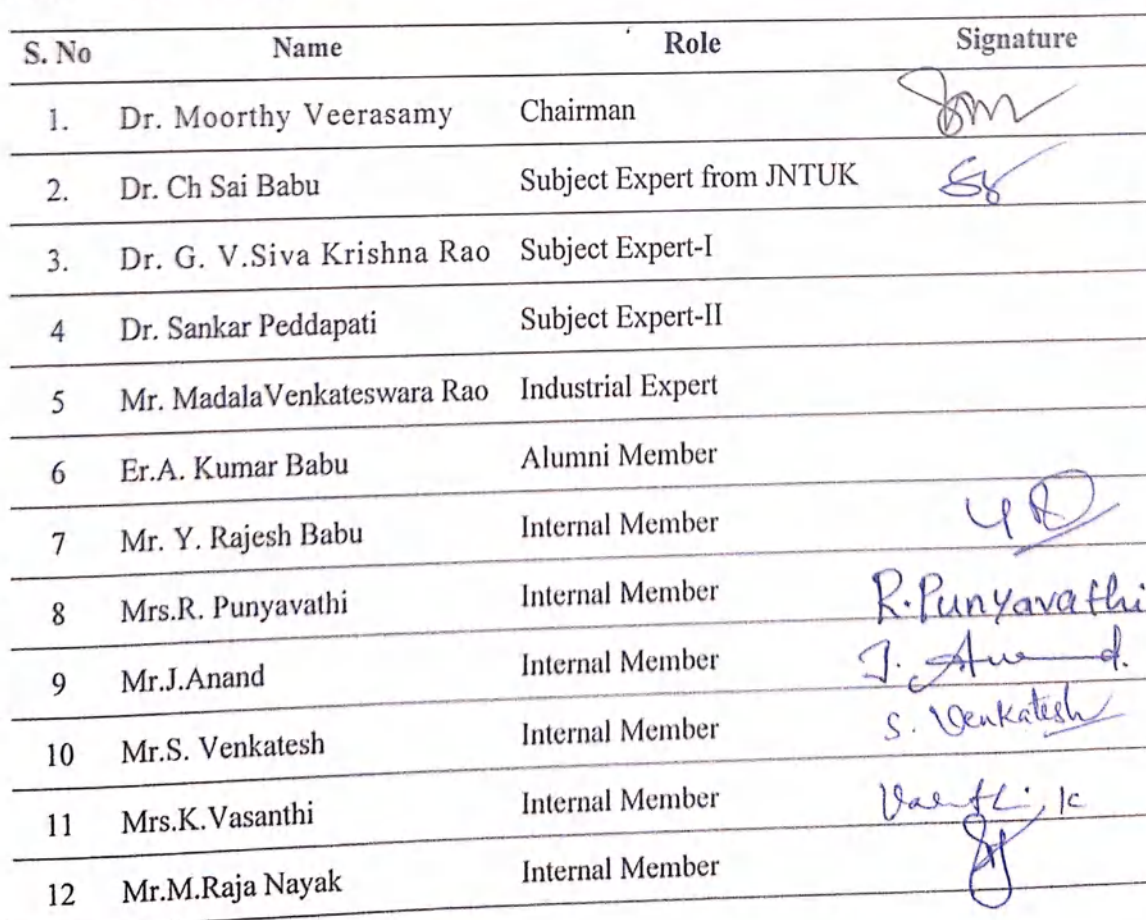 S. No Name Role Signature
1. Dr. Moorthy Veerasamy Chairman
2. Dr. Ch Sai Babu Subject Expert from JNTUK
3. Dr. G. V.Siva Krishna Rao Subject Expert-I
4 Dr. Sankar Peddapati Subject Expert-II
5 Mr. MadalaVenkateswara Rao Industrial Expert
6 Er.A. Kumar Babu Alumni Member
7 Mr. Y. Rajesh Babu Internal Member
8 Mrs.R. Punyavathi Internal Member R.Punyavathi
9 Mr.J.Anand Internal Member J. Anand.
10 Mr.S. Venkatesh Internal Member S. Venkatesh
11 Mrs.K.Vasanthi Internal Member
12 Mr.M.Raja Nayak Internal Member